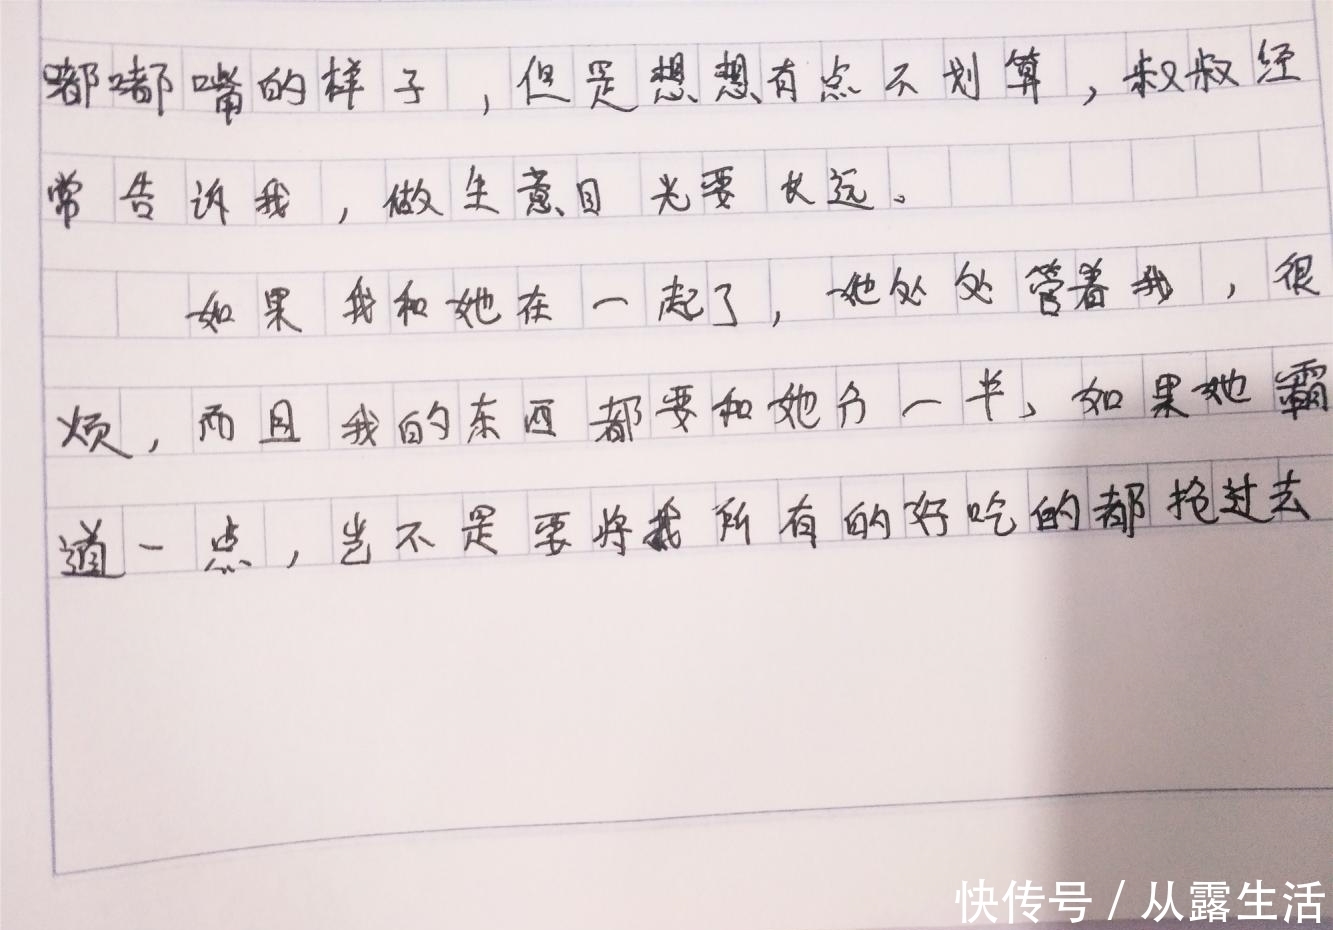 嘟嘟嘴的样子,但是想想有点不划算,叔叔经
常告诉我,做生意目光要长远。
如果我和她在一起了,她处处管着我,很
烦,而且我的东西都要和她分一半、如果她霸
道一点,岂不是要将我所有的好吃的都抢过去
快传号 / 从露生活